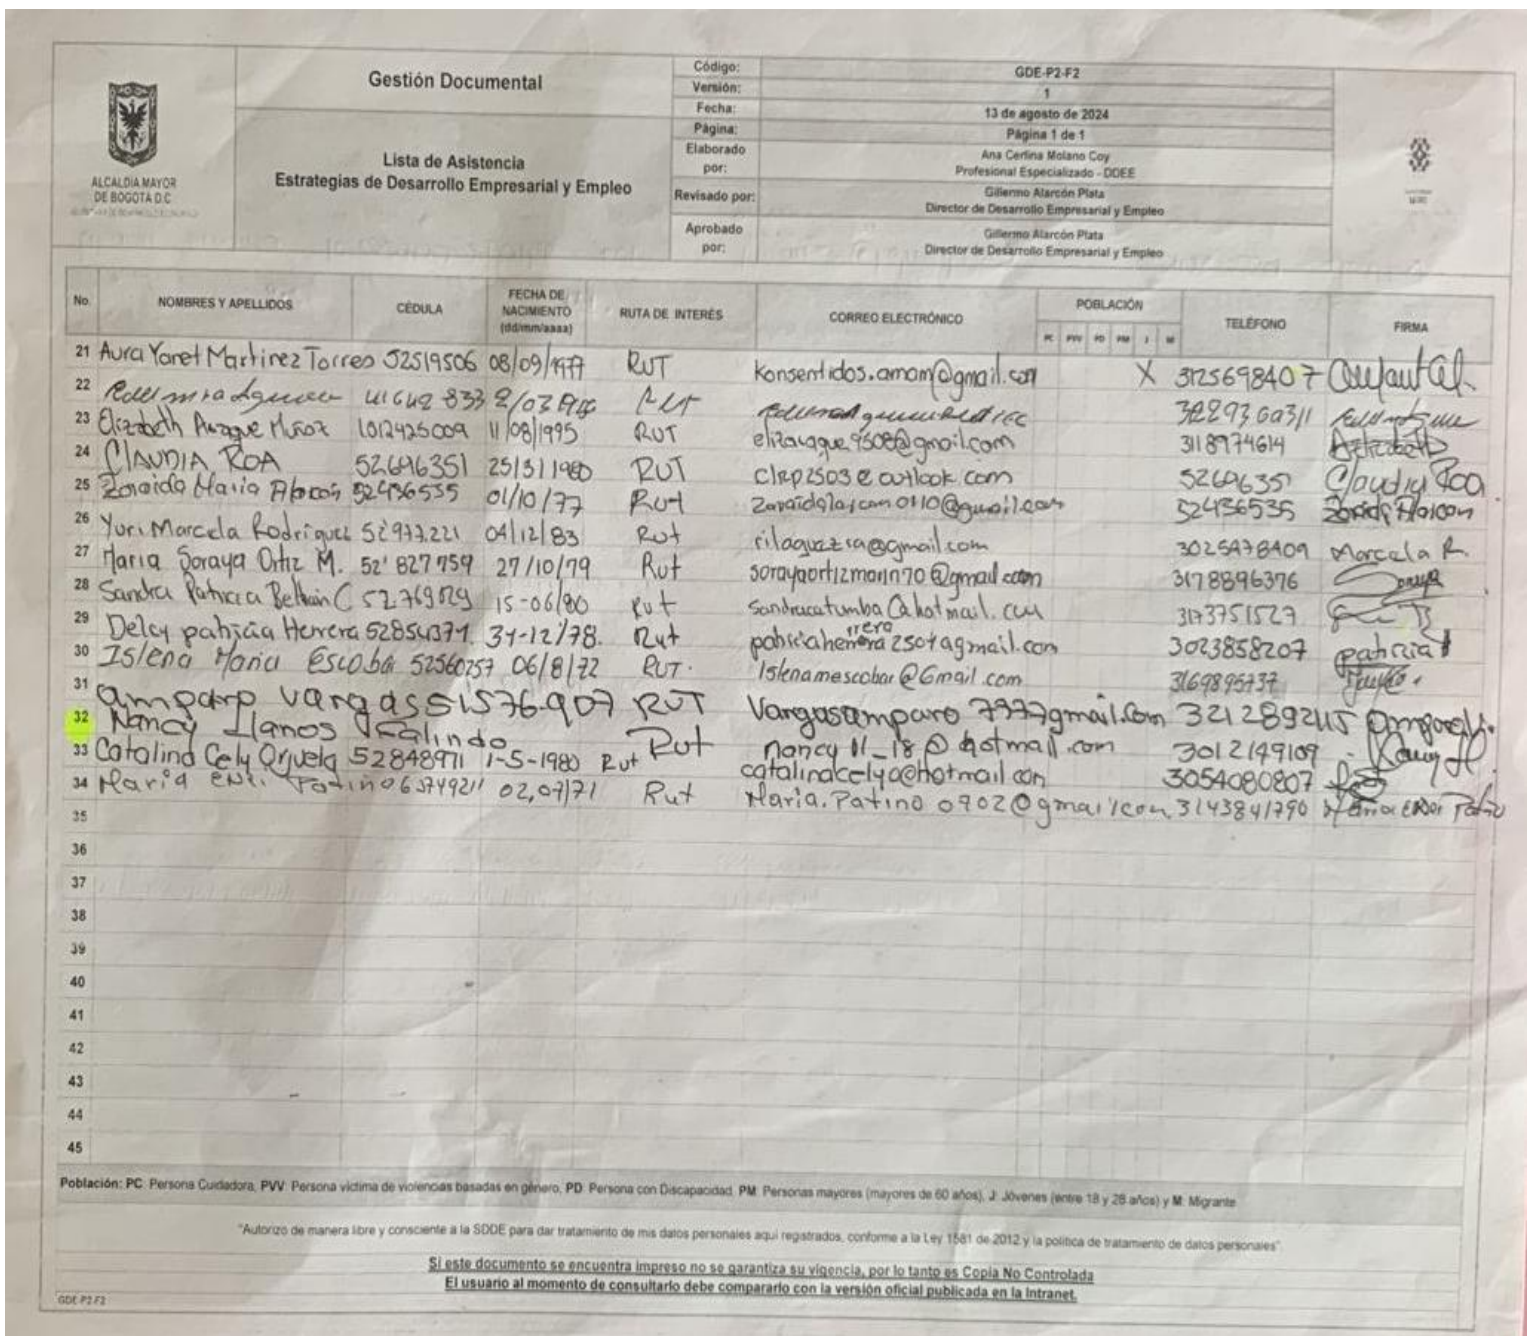 ALCALDÍA MAYOR
DE BOGOTÁ D.C.
Gestión Documental
Lista de Asistencia
Estrategias de Desarrollo Empresarial y Empleo
Código: GDE-P2-F2
Versión: 1
Fecha: 13 de agosto de 2024
Página: Página 1 de 1
Elaborado por: Ana Cerlina Molano Coy
Profesional Especializado - DDEE
Revisado por: Gillermo Alarcón Plata
Director de Desarrollo Empresarial y Empleo
Aprobado por: Gillermo Alarcón Plata
Director de Desarrollo Empresarial y Empleo
No. NOMBRES Y APELLIDOS CÉDULA FECHA DE NACIMIENTO (dd/mm/aaaa) RUTA DE INTERÉS CORREO ELECTRÓNICO POBLACIÓN TELÉFONO FIRMA
PC PVV PD PM J M
21 Aura Yanet Martinez Torres 52519506 08/09/1977 RUT konsentidos.amom@gmail.com X 3125698407
22 Rut
23 Elizabeth Avague Muñoz 1012425009 11/08/1995 RUT elizavague9508@gmail.com 3118974614
24 CLAUDIA ROA 52696351 25/3/1980 RUT clrp2503@outlook.com 52696351 Claudia Roa
25 Zoraida Maria Alarcon 52436535 01/10/77 Rut 52436535 Zoraida Alarcon
26 Yuri Marcela Rodriguez 52'977.221 04/12/83 Rut rilaguazra@gmail.com 3025478409 Marcela R.
27 Maria Soraya Ortiz M. 52'827759 27/10/79 Rut sorayaortizmarin70@gmail.com 3178896376 Soraya
28 Sandra Patricia Beltran C 52769029 15-06/80 Rut Sandracatumba@hotmail.com 3173751527
29 Delcy patricia Herrera 52854371. 31-12/78. Rut 3023858207 patricia
30 Islena Maria Escobar 52560257 06/8/72 RUT. Islenamescobar@Gmail.com 3169895737
31 amparo vargas 51576.907 RUT Vargasamparo7977gmail.com 3212892115
32 Nancy Llanos Galindo Rut nancyll_18@hotmail.com 3012149109
33 Catalina Cely Orjuela 52848971 1-5-1980 Rut catalinacelyo@hotmail.com 3054080807
34 Maria Patiño 63749211 02,07/71 Rut Maria.Patino0902@gmailcom 3143841790
35
36
37
38
39
40
41
42
43
44
45
Población: PC: Persona Cuidadora, PVV: Persona víctima de violencias basadas en género, PD: Persona con Discapacidad. PM: Personas mayores (mayores de 60 años), J: Jóvenes (entre 18 y 28 años) y M: Migrante
"Autorizo de manera libre y consciente a la SDDE para dar tratamiento de mis datos personales aquí registrados, conforme a la Ley 1581 de 2012 y la política de tratamiento de datos personales".
Si este documento se encuentra impreso no se garantiza su vigencia, por lo tanto es Copia No Controlada
El usuario al momento de consultarlo debe compararlo con la versión oficial publicada en la Intranet.
GDE-P2-F2